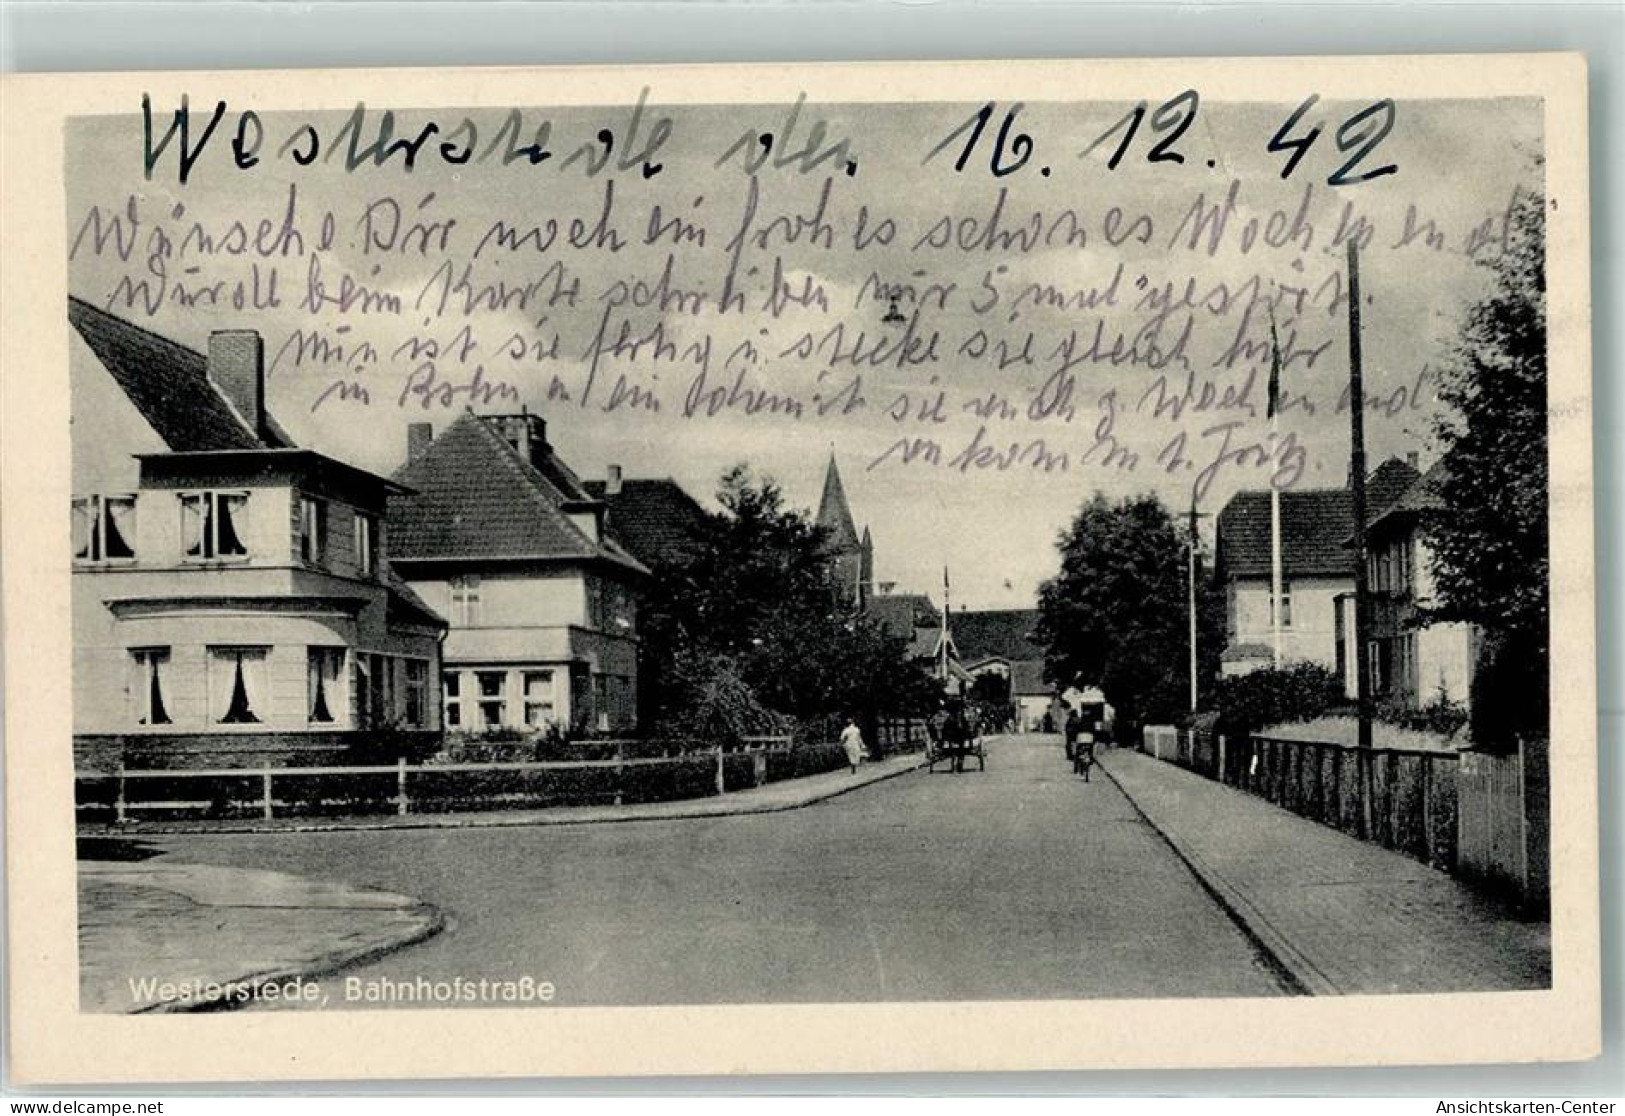 Westerstede den 16. 12. 42
Wünsche Dir noch ein frohes schönes Wochenend
Wurde beim Karte schreiben mir 5 mal gestört.
Nun ist sie fertig u. stecke sie gleich hier
in Bahn ein damit sie auch z. Wochenend
ankommt. Fritz.
Westerstede, Bahnhofstraße
delcampe.net
Ansichtskarten-Center